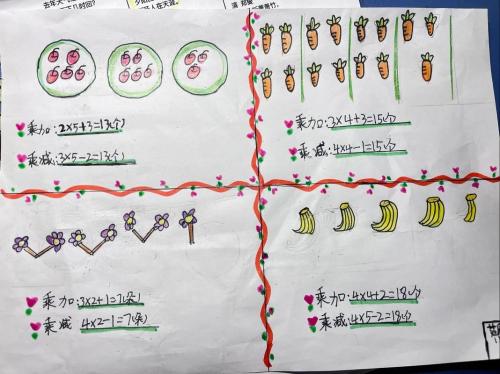 乘加:2×5+3=13(个)
乘减:3×5-2=13(个)
乘加:3×4+3=15(个)
乘减:4×4-1=15(个)
乘加:3×2+1=7(条)
乘减 4×2-1=7(条)
乘加:4×4+2=18(个)
乘减:4×5-2=18(个)